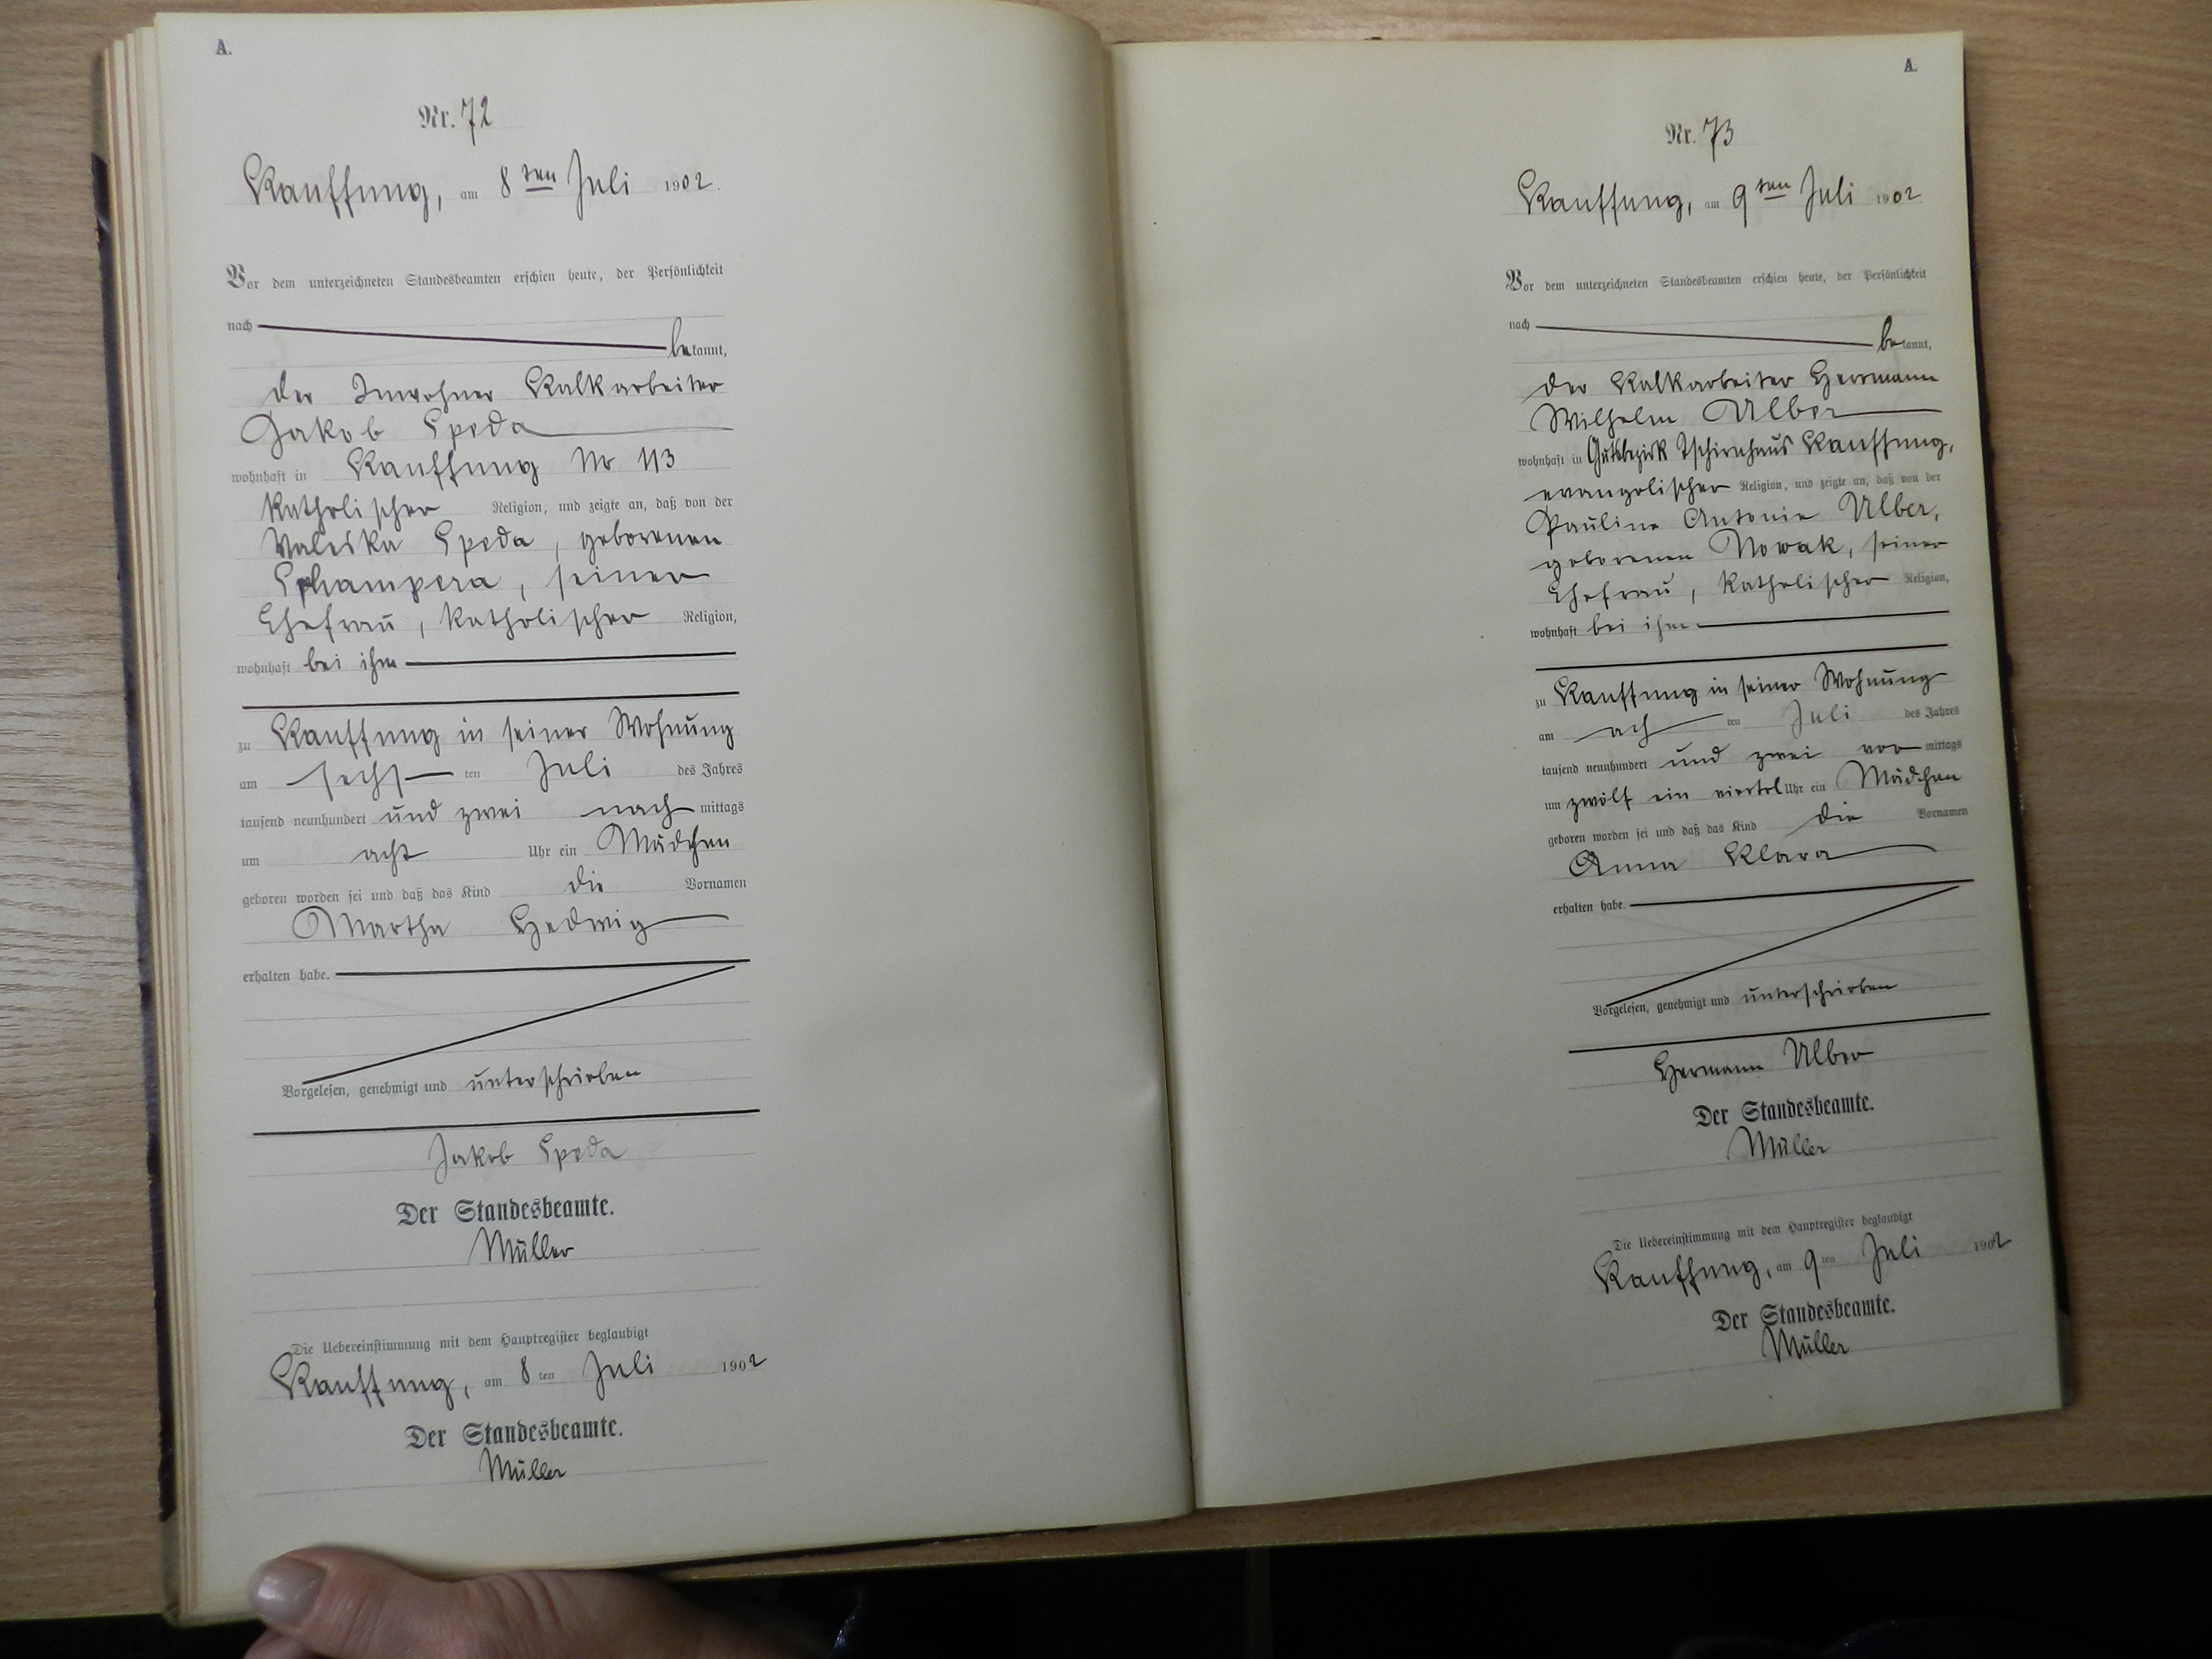 A.
Nr. 72
Kauffung, am 8ten Juli 1902.
Vor dem unterzeichneten Standesbeamten erschien heute, der Persönlichkeit
nach
bekannt,
der Inwohner Kalkarbeiter
Jakob Speda
wohnhaft in Kauffung No 113
katholischer Religion, und zeigte an, daß von der
Valeska Speda, geborenen
seiner
Ehefrau, katholischer Religion,
wohnhaft bei ihm
zu Kauffung in seiner Wohnung
am sechsten Juli des Jahres
tausend neunhundert und zwei nachmittags
um acht Uhr ein Mädchen
geboren worden sei und daß das Kind die Vornamen
Martha Hedwig
erhalten habe.
Vorgelesen, genehmigt und unterschrieben
Jakob Speda
Der Standesbeamte.
Müller
Die Uebereinstimmung mit dem Hauptregister beglaubigt
Kauffung, am 8ten Juli 1902
Der Standesbeamte.
Müller
A.
Nr. 73
Kauffung, am 9ten Juli 1902.
Vor dem unterzeichneten Standesbeamten erschien heute, der Persönlichkeit
nach
bekannt,
der Kalkarbeiter Herrmann
Wilhelm Ulber
wohnhaft in Gutsbezirk Tschirnhaus Kauffung,
evangelischer Religion, und zeigte an, daß von der
Pauline Antonie Ulber,
geborenen Nowak, seiner
Ehefrau, katholischer Religion,
wohnhaft bei ihm
zu Kauffung in seiner Wohnung
am achten Juli des Jahres
tausend neunhundert und zwei vormittags
um zwölf ein viertel Uhr ein Mädchen
geboren worden sei und daß das Kind die Vornamen
Anna Klara
erhalten habe.
Vorgelesen, genehmigt und unterschrieben
Hermann Ulber
Der Standesbeamte.
Müller
Die Uebereinstimmung mit dem Hauptregister beglaubigt
Kauffung, am 9ten Juli 1902
Der Standesbeamte.
Müller